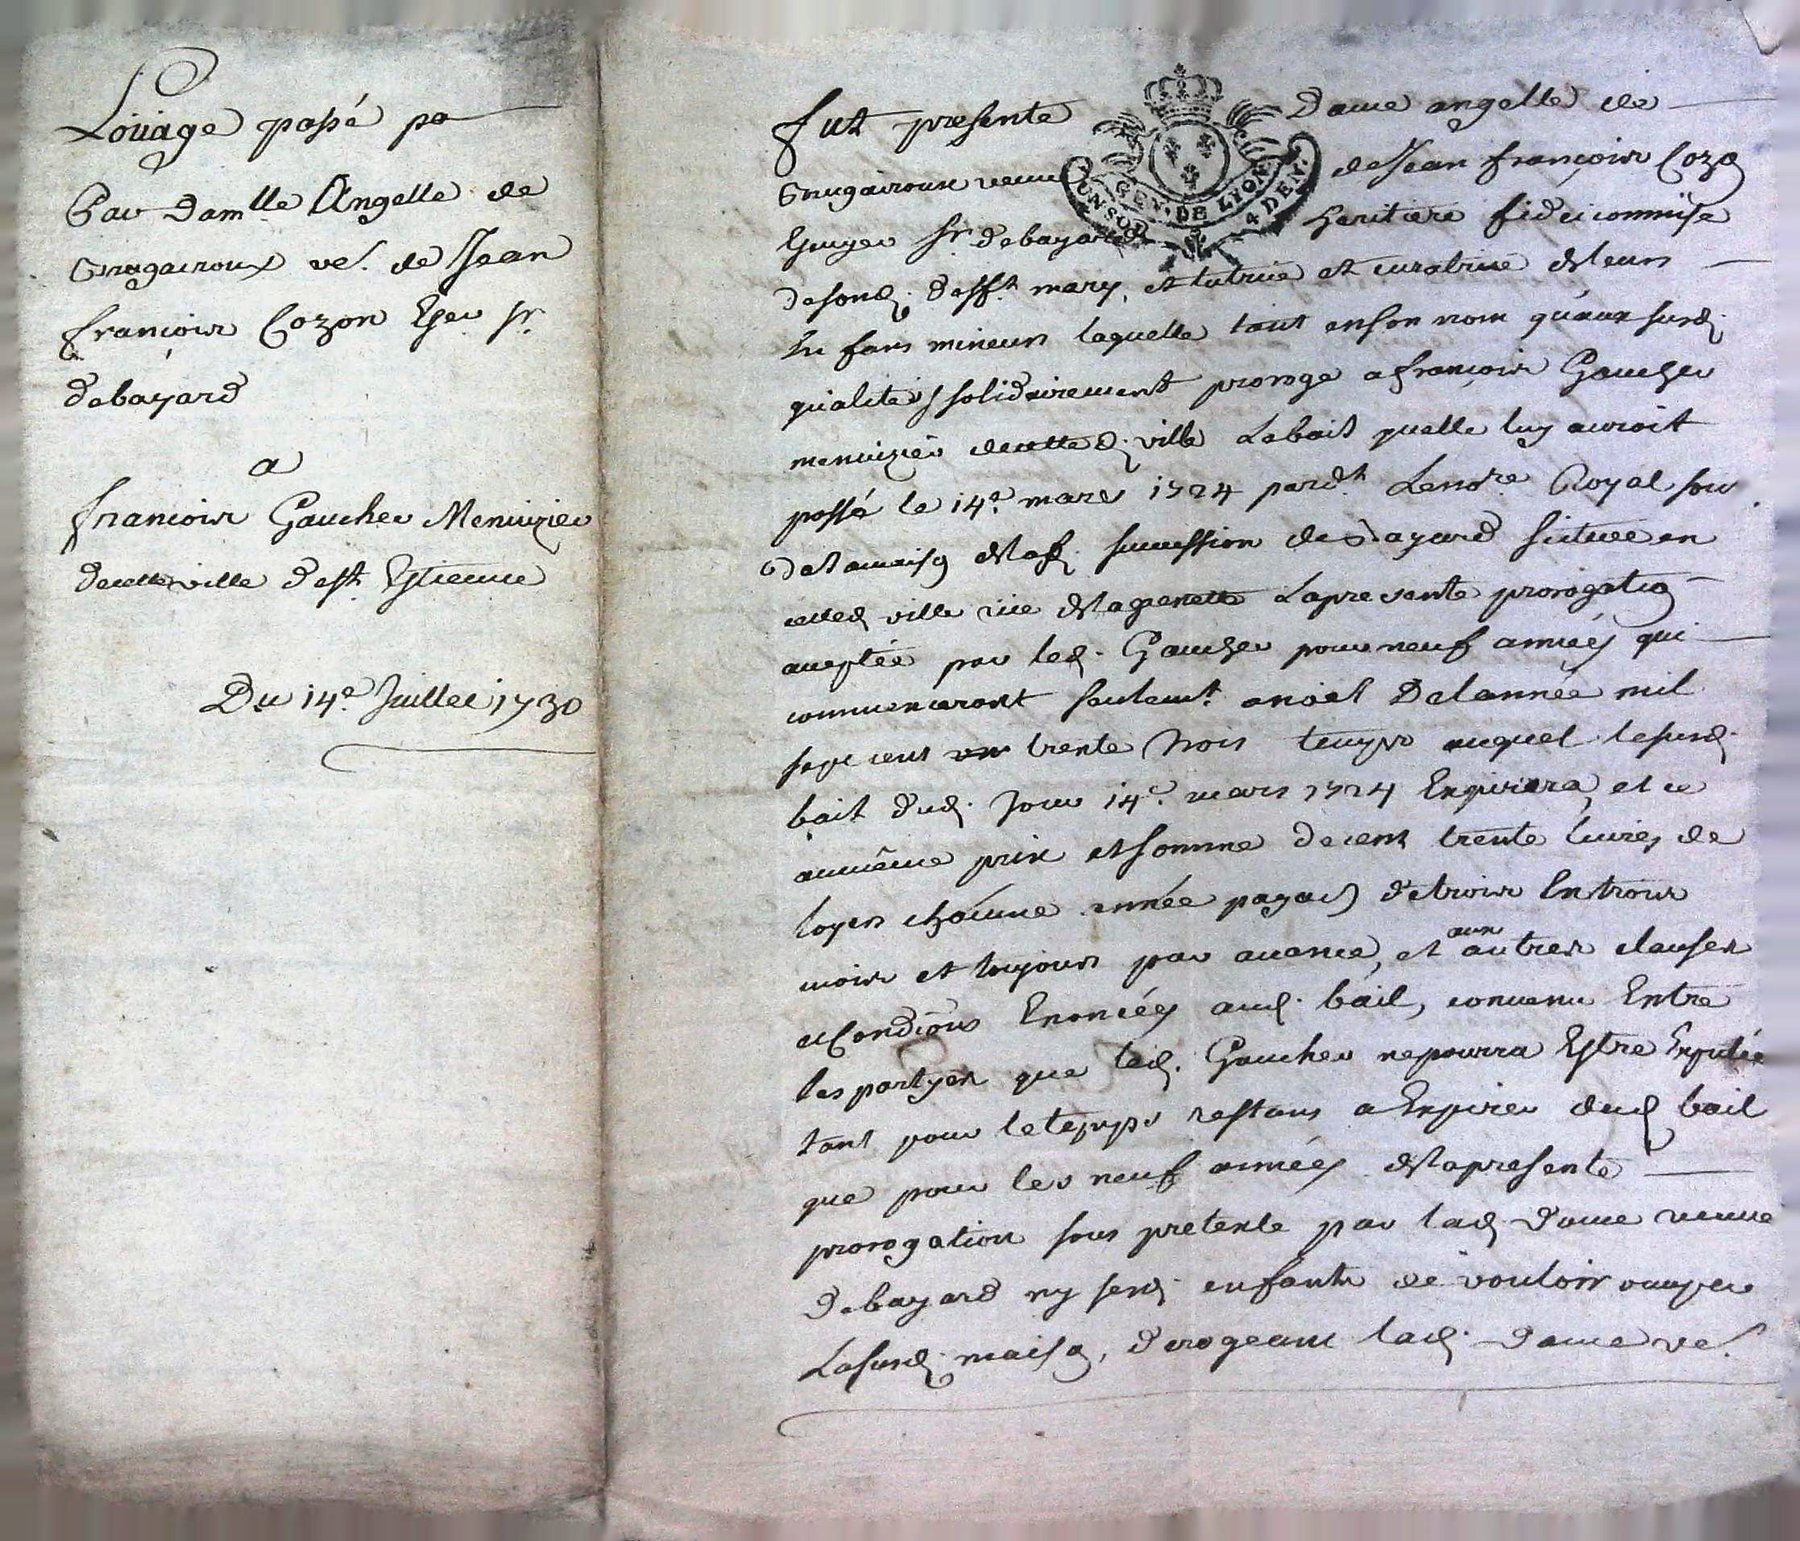 Loüage passé pa
Par dam^lle Angelle de
Grugairoux ve^e. de Jean
françois Cozon Ecer sr.
debayard
a
françois Gaucher Menuizier
decette ville de st. Estienne
Du 14e. Juillet 1730
fut presente Dame angelle de
Grugairoux veuve de Jean françois Cozon
Ecuyer sr. debayard heritiere fideicommise
desond. defft. mary, et tutrice et curatrice deleurs
En fans mineurs laquelle tant enson nom qúaux susd.
qualités solidairement proroge a françois Gaucher
menuizier decetted. ville Lebail quelle luy auroit
passé le 14e. mars 1724 pardt. Lenore. Royal sous.
delamaison delad. succession de Bayard scituée en
cetted. ville rüe delagrenette Lapresente prorogation
aceptée par led. Gaucher pour neuf années qui
commenceront seulemt. anoël Delannée mil
sept cent trente trois temps auquel lesusd.
bail dud. Jour 14e. mars 1724 Expirera, et ce
aumême prix etsomme decent trente livres de
loyer chácune année payables detrois Entrois
mois et toujours par avance, et aux autres clauses
etCondições Enoncées aud. bail, convenu Entre
les partyes que led. Gaucher nepourra Estre Expulcé
tant pour letemps restans a Expirer dud. bail
que pour les neuf années delapresente
prorogation sous pretexte par lad. dame veuve
debayard ny sesd. enfants de vouloir occuper
Lasusd. maison, derogeant lad. dame ve.
GEN. DE LYON
UN SOL 4 DEN.